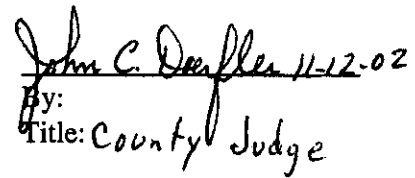 John C. Doerfler 11-12-02
By:
Title: County Judge